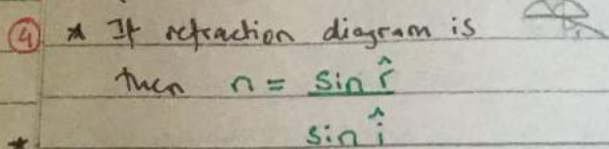 ④ * If refraction diagram is
then n = sin r̂
sin î
*